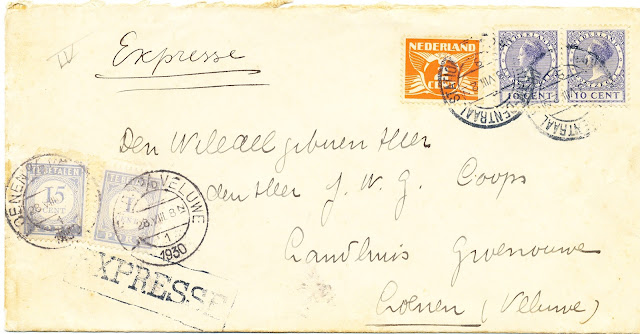 IV
Expresse
NEDERLAND
NEDERLAND NEDERLAND
10 CENT 10 CENT
CENTRAAL CENTRAAL
Den WelEdelgeboren Heer
den Heer J. W. G. Coops
Landhuis Groenouwe
Loenen (Veluwe)
TE BETALEN
15
CENT
VELUWE
28 VIII
1
1930
EXPRESSE